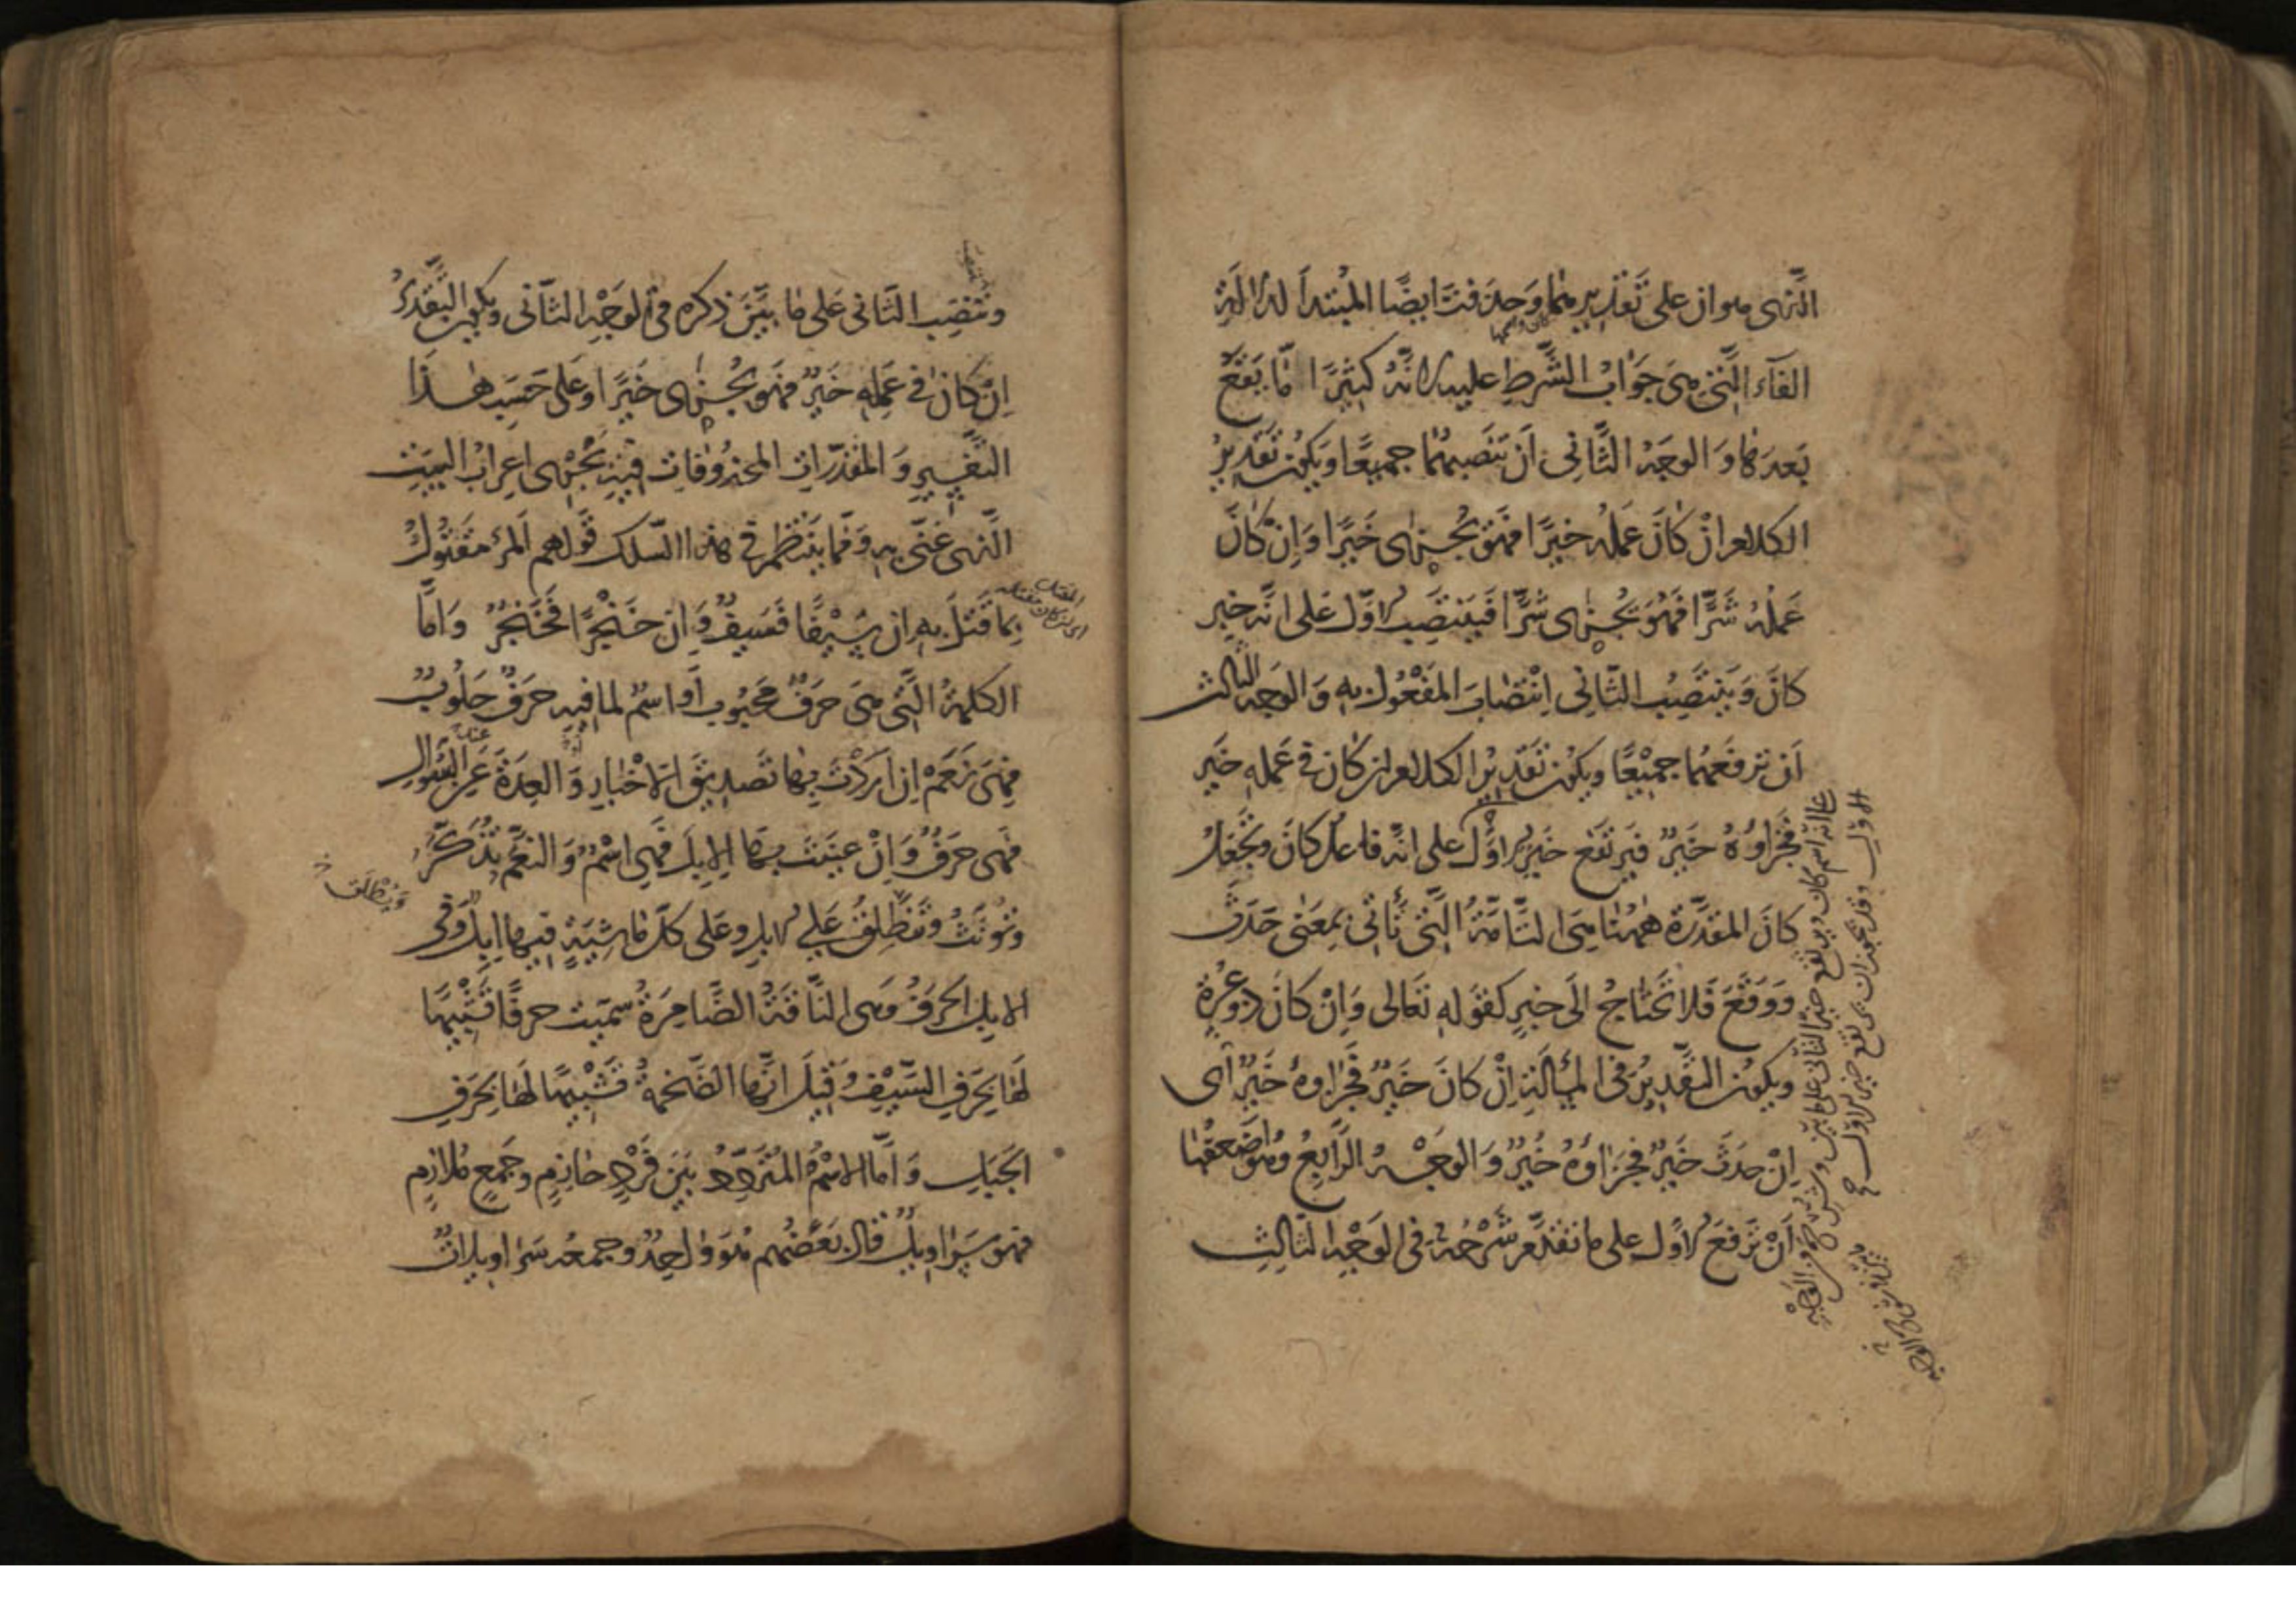 الَّذِى هو ان على تَقْدِيرِهما وَحذَفتَ ايضًا المُبتدأَ لدلالَةِ
كان وهما
الفَآءِ الَّتي هِىَ جَوَابُ الشَّرطِ عليه لانَّهُ كَثِيرًا مّا يَقَعُ
بَعدَهَا وَ الوجهُ الثَّانِى اَنْ تَنصِبهُمَا جميعًا وَيَكونَ تَقْدِيرُ
الكلام اِنْ كَانَ عَمَلُهُ خيرًا فَهُوَ يُجْزٰى خَيرًا وَاِنْ كَانَ
عَمَلُهُ شَرًّا فَهُوَ يُجْزٰى شَرًّا فَيَنتَصِبُ الاوّل عَلى انَّه خبر
كانَ وَيَنتَصِبُ الثَّانِى اِنْتِصَابَ المَفْعُولِ بِهِ وَ الوجه الثالث
اَن تَرفَعَهُما جَميْعًا وَيكونَ تَقْدِيرُ الكلام ان كان فى عَمَلِهِ خَير
فَجَزاؤُهُ خَيرٌ فَيَرتَفع خَيرٌ الاوَّل على انَّه فاعل كانَ وَتَجْعَلُ
كانَ المقدَّرة هٰهُنَا هِىَ التَّامَّةُ الَّتى تَأتِى بِمَعنٰى حَدَثَ
وَوَقَعَ فَلَا تَحْتَاجُ الَى خبرٍ كقَولِهِ تَعَالى وَاِنْ كَانَ ذو عُسْرَةٍ
ويكون التَّقديرُ فى المسألَةِ اِنْ كانَ خَيرٌ فَجَزاوهُ خَيرٌ اَى
اِنْ حدَثَ خَيرٌ فجَزَاؤهُ خَيرٌ وَ الوَجْهُ الرَّابِعُ وَهُوَ اضعفُها
اَنْ تَرفعَ الاوّل على ما تقدَّم شَرْحُهُ فى الوَجْهِ الثَّالِثِ
الاوّل وقد يجوز ان يرتفع خير الاول
على انه اسم كان ويرتفع خبر الثانى على ما بيّن
وتَنصِبَ الثَّانى عَلى ما بَيَّنَ ذكره فى الوَجْهِ الثَّانى ويكون التَّقْدِيرُ
اِنْ كانَ فى عَمَلِهِ خَيرٌ فهوَ يُجْزٰى خَيرًا وعَلى حَسَبِ هٰذَا
التَّفسِيرِ وَ المُقدّراتِ المحذُوفاتِ فيهِ يَجْرِى اعرابُ البيتِ
الَّذِى غَنَّى بِهِ وَمِمّا يَنتَظِمُ فى هذا السّلك قَولهم المرء مَقتُولٌ
اى ان كان المقتول به
بما قَتَلَ بِهِ اِن سَيْفًا فَسَيفٌ وَاِن خَنْجَرًا فَخَنْجَرٌ وَاَمَّا
الكلمةُ الَّتى هِىَ حَرفٌ مَحبُوبٌ اَو اسمٌ لما فيهِ حرَفٌ حَلُوبٌ
فهِىَ نَعَمْ اِن اَرَدْتَ بِهَا تَصديقَ الاخْبَارِ وَ العِدَةَ عِندَ السُّؤالِ
فَهِى حرَفٌ وَاِنْ عنَيتَ بِهَا الابِلَ فَهِى اسْمٌ وَ النعَمُ تُذَكَّرُ
وتُؤنَّثُ وتَنطَلِقُ عَلى الابلِ وعَلى كلّ مَاشيَةٍ فيها ابلٌ وَفى
ويُطْلَق
الابِل الحَرفُ وَهى النَّاقَةُ الضَّامِرَةُ سُمّيَت حرفًا تَشْبِيهًا
لَها بِحَرفِ السَّيْفِ وَقِيلَ انَّها الضَّخمةُ تَشْبِيهًا لَها بِحَرفِ
الجَبَلِ وَامَّا الاسْمُ المُتَرَدِّدُ بَينَ فَرْدٍ حَازِمٍ وجَمعٍ مُلازِمٍ
فهو سَرَاوِيلُ قال بَعضُهم هُوَ واحِدٌ وجمعُه سَراوِيلَاتٌ